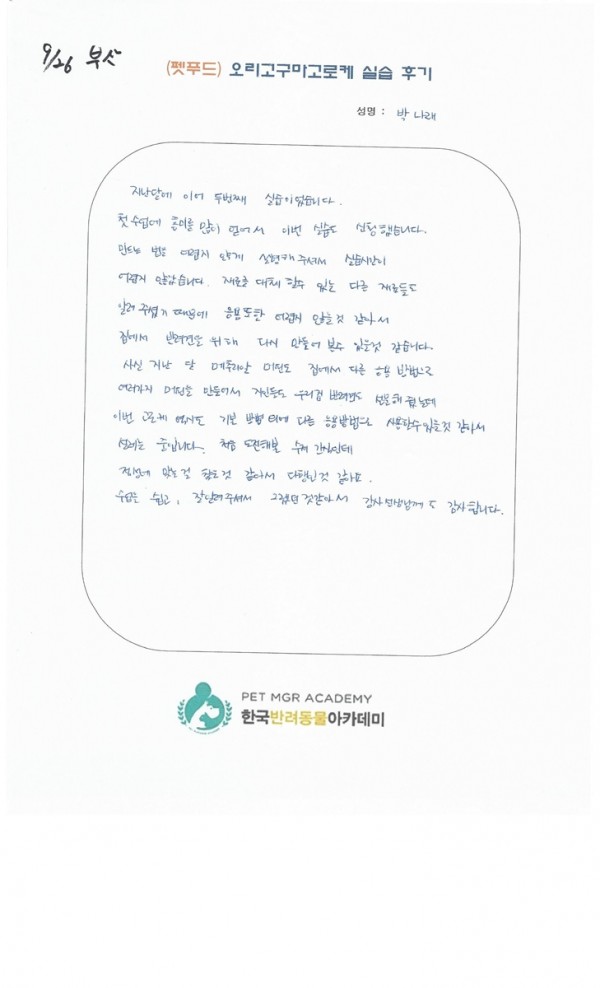 9/26 부산
(펫푸드) 오리고구마고로케 실습 후기
성명 : 박나래
지난달에 이어 두번째 실습이었습니다.
첫 수업에 흥미를 많이 얻어서 이번 실습도 신청했습니다.
만드는 법을 어렵지 않게 설명해 주셔서 실습시간이
어렵지 않았습니다. 재료를 대체할수 있는 다른 재료들도
알려 주셨기 때문에 응용또한 어렵지 않을것 같아서
집에서 반려견을 위해 다시 만들어 볼수 있을것 같습니다.
사실 지난 달 머핀도 집에서 다른 응용 방법으로
여러가지 머핀을 만들어서 지인들도 선물해 줬는데
이번 고로케 역시도 기본 방법 이외에 다른 응용방법으로 사용할수있을것 같아서
설레는 중입니다. 처음 도전해본 수제 간식인데
적성에 맞는걸 찾은것 같아서 다행인것 같아요.
수업을 쉽고, 잘알려주셔서 그랬던것같아서 강사선생님께도 감사합니다.
PET MGR ACADEMY
한국반려동물아카데미